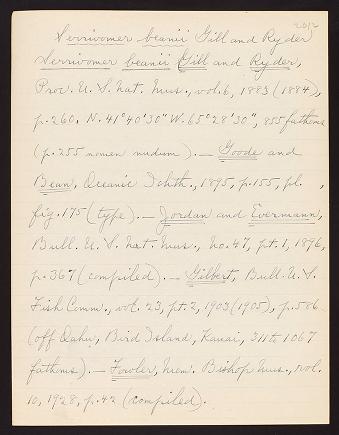 2012
Serrivomer beanii Gill and Ryder
Serrivomer beanii Gill and Ryder,
Proc. U. S. Nat. Mus., vol. 6, 1883 (1884),
p. 260. N. 41°40'30" W. 65°28'30", 855 fathoms
(p. 255 nomen nudum). — Goode and
Bean, Oceanic Ichth., 1895, p. 155, pl. ,
fig. 175 (type). — Jordan and Evermann,
Bull. U. S. Nat. Mus., No. 47, pt. 1, 1896,
p. 367 (compiled). — Gilbert, Bull. U. S.
Fish Comm., vol. 23, pt. 2, 1903 (1905), p. 586
(off Oahu, Bird Island, Kauai, 311 to 1067
fathoms). — Fowler, Mem. Bishop Mus., vol.
10, 1928, p. 42 (compiled).